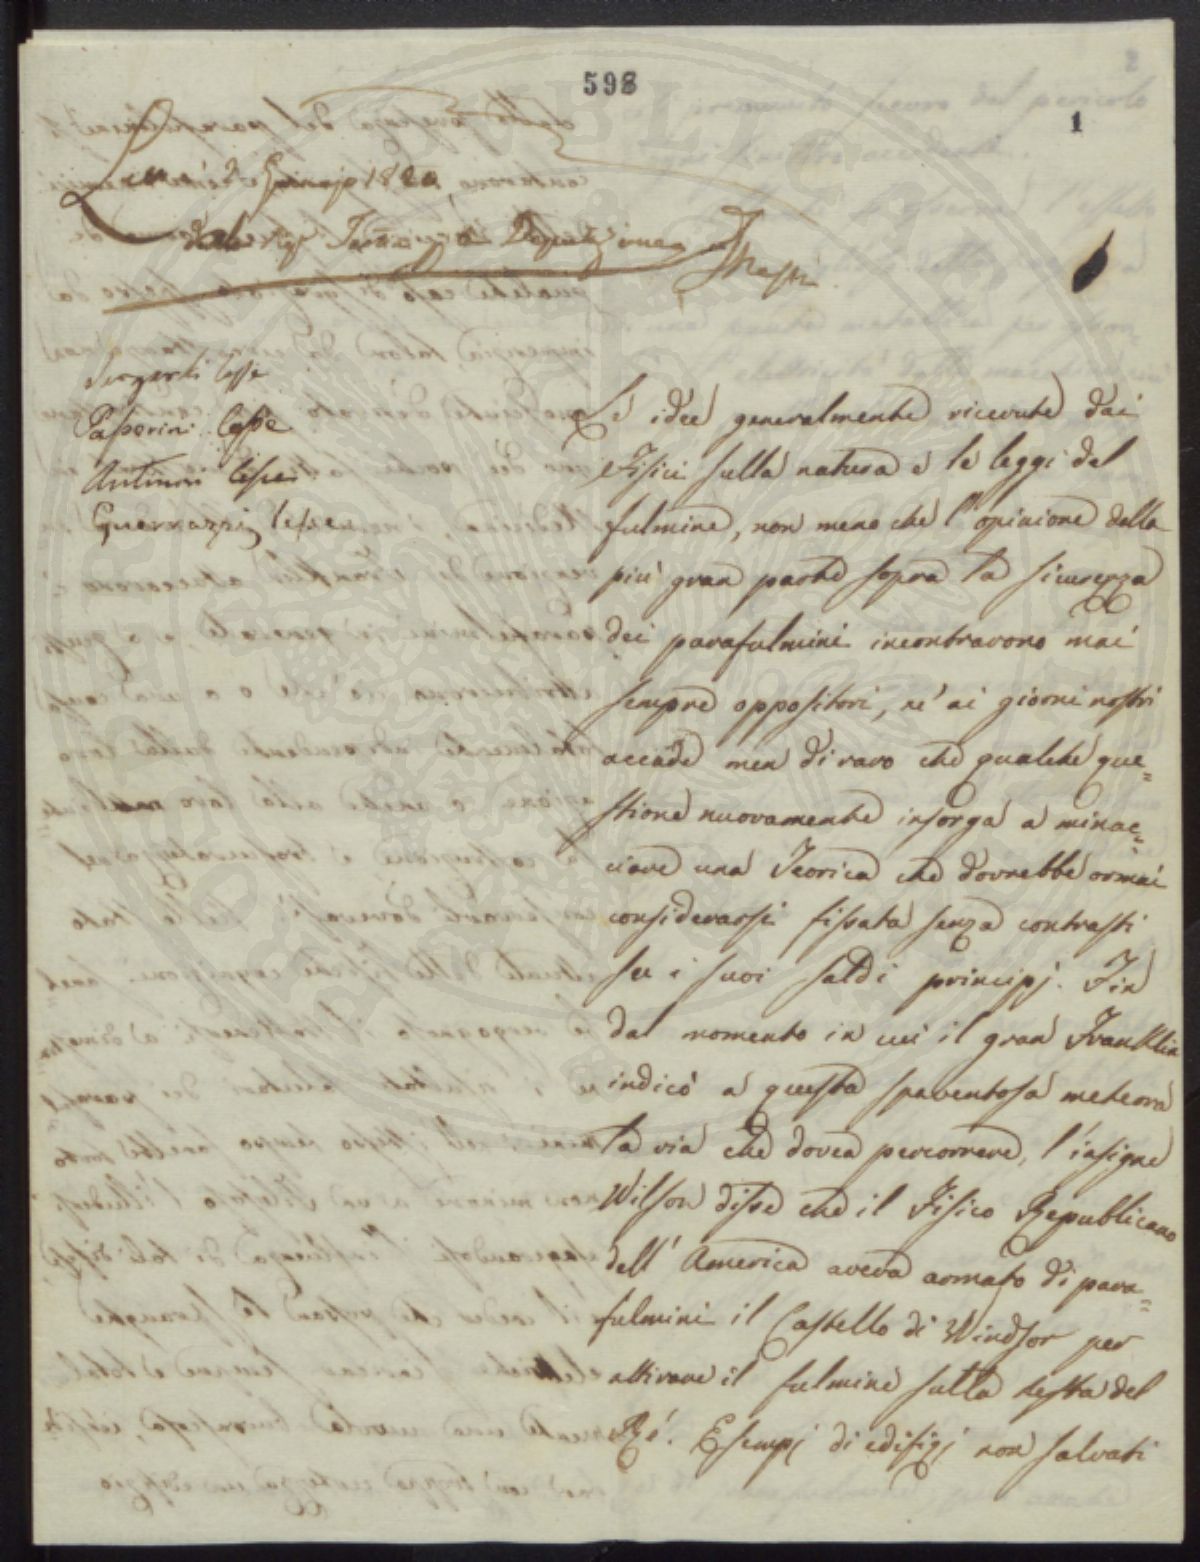 598
1
Giugno 1820
Deputazione
Passerini lesse
Antinori lesse
Guerrazzi lesse
Le idee generalmente ricevute dai
Fisici sulla natura e le leggi del
fulmine, non meno che l'opinione della
più gran parte sopra la sicurezza
dei parafulmini incontravono mai
sempre oppositori, ne' ai giorni nostri
accade men di raro che qualche que=
stione nuovamente insorga a minac=
ciare una Teorica che dovrebbe ormai
considerarsi fissata senza contrasti
su i suoi saldi principj. Fin
dal momento in cui il gran Franklin
indicò a questa spaventosa meteora
la via che dovea percorrere, l'insigne
Wilson disse che il Fisico Republicano
dell'America aveva armato di para=
fulmini il Castello di Windsor per
attirare il fulmine sulla testa del
Ré. Esempj di edifizj non salvati